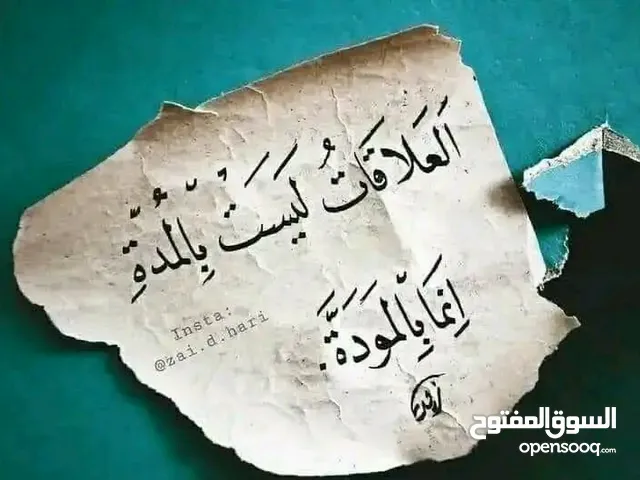 اَلعَلاقَاتُ لَيسَتْ بِالمُدَّةِ
اِنمَا بِالمَوَدَةَّ.
Insta:
@zai.d.hari
السوق المفتوح
opensooq.com